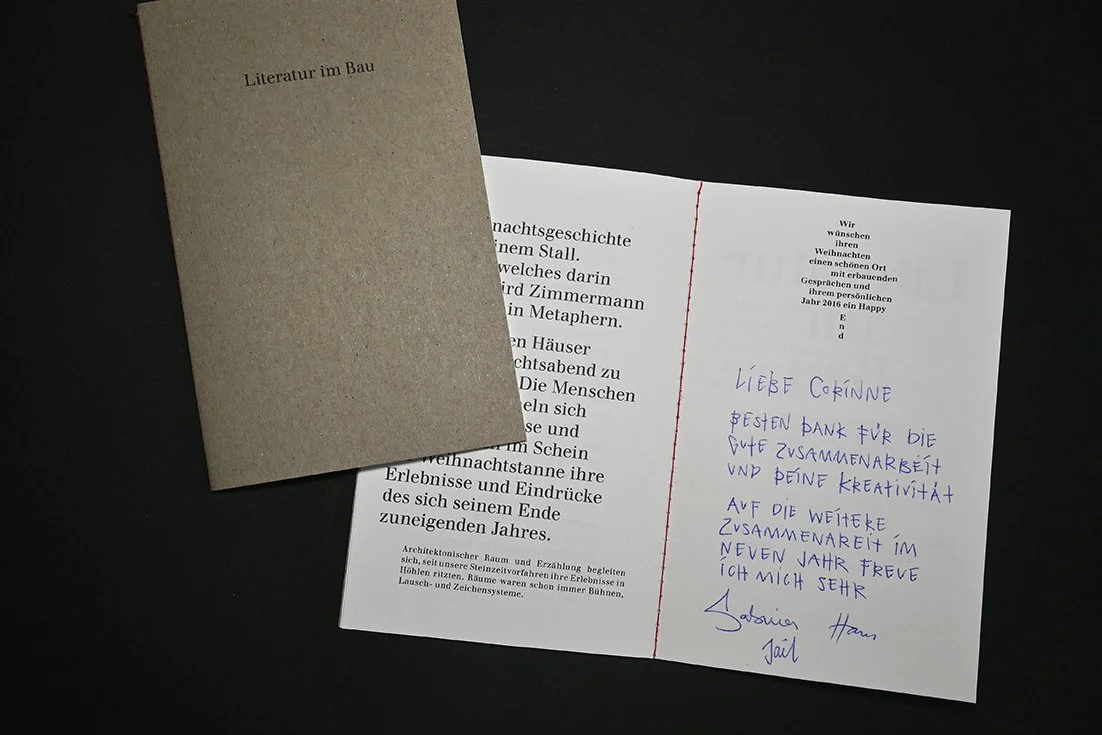 Literatur im Bau
nachtsgeschichte
inem Stall.
welches darin
ird Zimmermann
in Metaphern.
en Häuser
chtsabend zu
Die Menschen
eln sich
se und
im Schein
Weihnachtstanne ihre
Erlebnisse und Eindrücke
des sich seinem Ende
zuneigenden Jahres.
Architektonischer Raum und Erzählung begleiten
sich, seit unsere Steinzeitvorfahren ihre Erlebnisse in
Höhlen ritzten. Räume waren schon immer Bühnen,
Lausch- und Zeichensysteme.
Wir
wünschen
ihren
Weihnachten
einen schönen Ort
mit erbauenden
Gesprächen und
ihrem persönlichen
Jahr 2016 ein Happy
E
n
d
LIEBE CORINNE
BESTEN DANK FÜR DIE
GUTE ZUSAMMENARBEIT
UND DEINE KREATIVITÄT
AUF DIE WEITERE
ZUSAMMENAREIT IM
NEUEN JAHR FREUE
ICH MICH SEHR